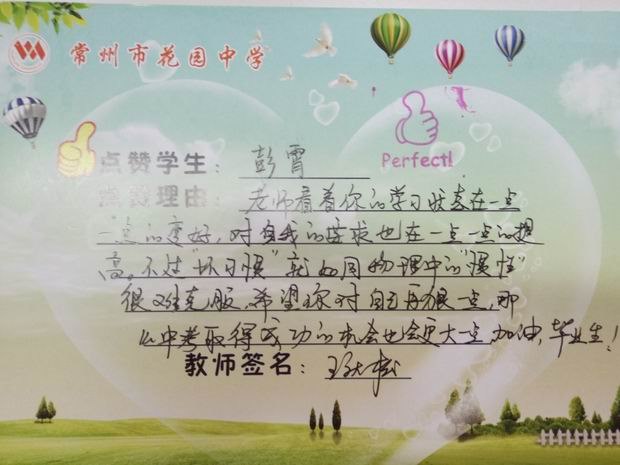 常州市花园中学
点赞学生：彭霄
Perfect!
点赞理由：老师看着你的学习状态在一点
一点的变好，对自我的要求也在一点一点的提
高。不过"坏习惯"就如同物理中的"惯性"
很难克服，希望你对自己再狠一点，那
么中考取得成功的机会也会更大一点，加油，毕业生！
教师签名：